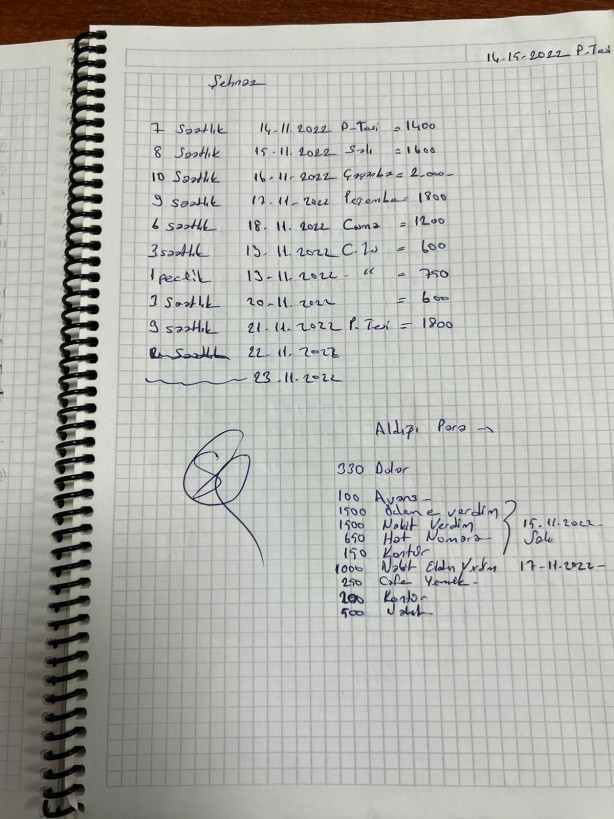 14-15-2022 P.Tesi
Şehnaz
7 Saatlik 14.11.2022 P-Tesi = 1400
8 Saatlik 15-11.2022 Salı = 1600
10 Saatlik 16-11-2022 Çarşamba = 2.000-
9 Saatlik 17-11-2022 Perşembe = 1800
6 saatlik 18.11.2022 Cuma = 1200
3 saatlik 19-11.2022 = 600
1 19-11-2022 - " = 750
3 Saatlik 20-11.2022 = 600
9 saatlik 21.11.2022 P.Tesi = 1800
Saatlik 22.11.2022
23.11.2022
Aldığı Para →
330 Dolar
100 Avans -
1500 ödeme verdim
1500 Nakit Verdim 15.11.2022-
650 Hat Nomara- Salı
150 Kontör
1000 Nakit Elden Verdim 17-11-2022-
250 Cafe Yemek-
200 Kontör
500